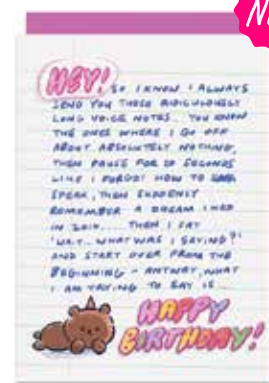 HEY! SO I KNOW I ALWAYS
SEND YOU THESE RIDICULOUSLY
LONG VOICE NOTES... YOU KNOW
THE ONES WHERE I GO OFF
ABOUT ABSOLUTELY NOTHING,
THEN PAUSE FOR 10 SECONDS
LIKE I FORGOT HOW TO
SPEAK, THEN SUDDENLY
REMEMBER A DREAM I HAD
IN ..... THEN I SAY
'WAIT... WHAT WAS I SAYING?'
AND START OVER FROM THE
BEGINNING - ANYWAY, WHAT
I AM TRYING TO SAY IS...
HAPPY
BIRTHDAY!